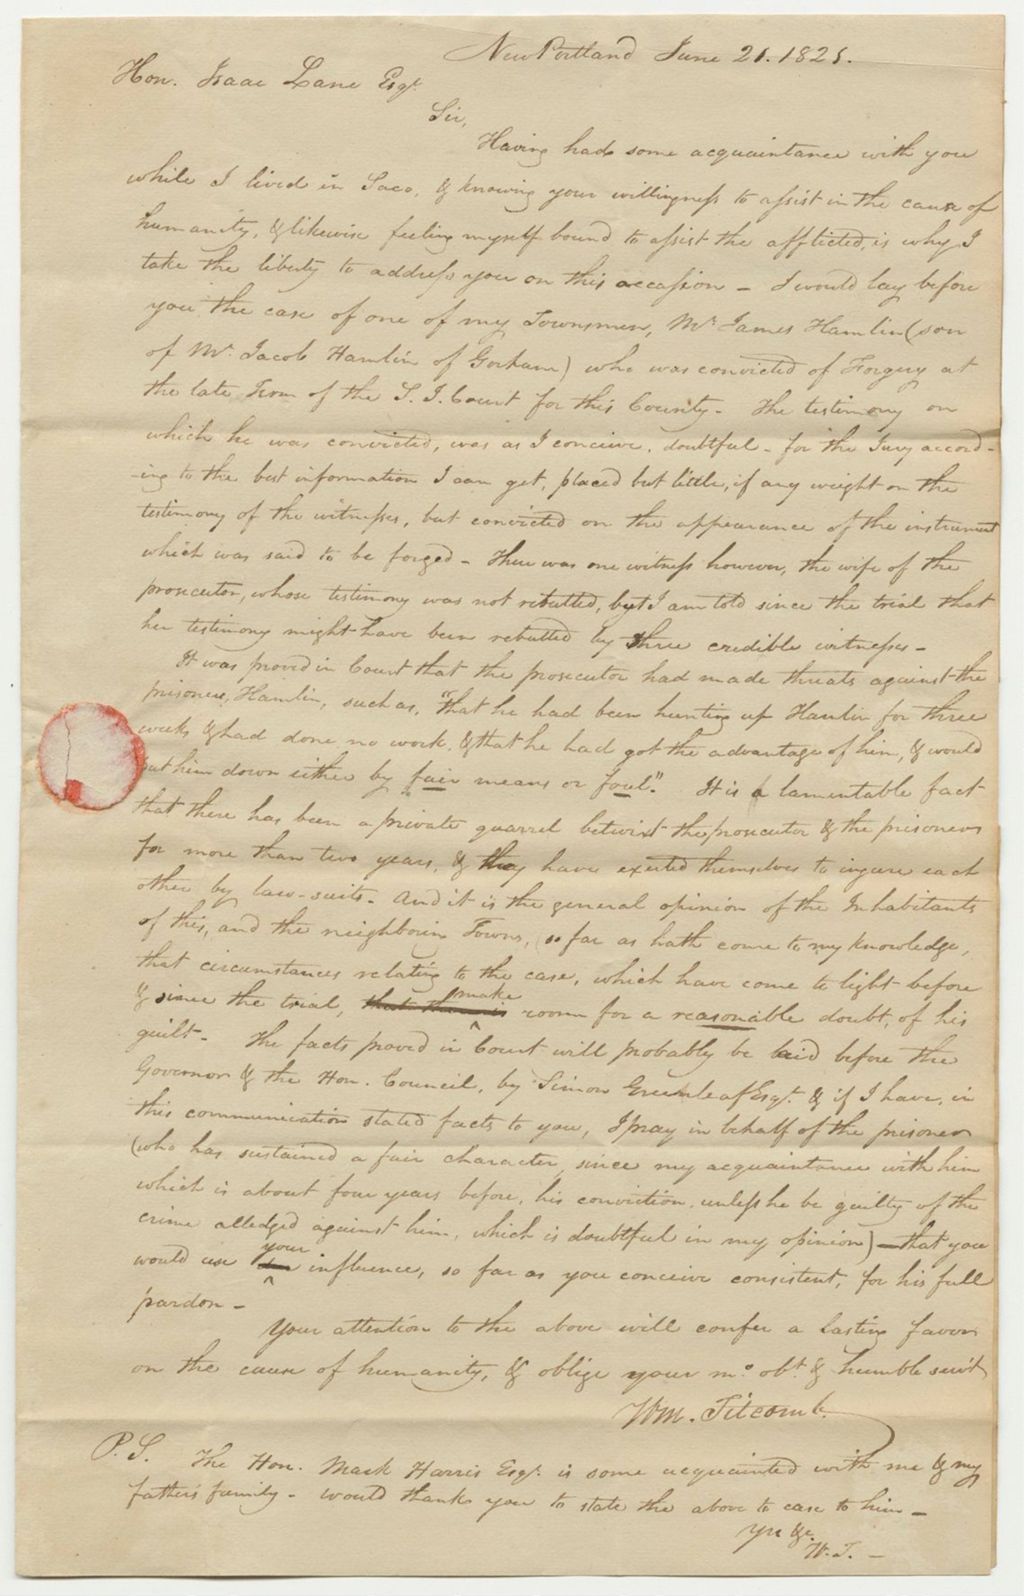 New Portland June 21. 1825.
Hon. Isaac Lane Esqr.
Sir,
Having had some acquaintance with you
while I lived in Saco, & knowing your willingness to assist in the cause of
humanity, & likewise feeling myself bound to assist the afflicted, is why I
take the liberty to address you on this occasion – I would lay before
you the case of one of my Townsmen, Mr. James Hamlin (son
of Mr. Jacob Hamlin of Gorham) who was convicted of Forgery at
the late Term of the S. J. Court for this County – The testimony on
which he was convicted, was as I conceive, doubtful – for the Jury accord-
-ing to the best information I can get, placed but little, if any weight on the
testimony of the witnesses, but convicted on the appearance of the instrument
which was said to be forged – There was one witness however, the wife of the
prosecutor, whose testimony was not rebutted, but I am told since the trial that
her testimony might have been rebutted by three credible witnesses –
It was proved in Court that the prosecutor had made threats against the
prisoner, Hamlin, such as, "that he had been hunting up Hamlin for three
weeks & had done no work, & that he had got the advantage of him, & would
put him down either by fair means or foul". It is a lamentable fact
that there has been a private quarrel betwixt the prosecutor & the prisoner
for more than two years, & they have exerted themselves to injure each
other by law-suits – And it is the general opinion of the Inhabitants
of this, and the neighboring Towns, (so far as hath come to my knowledge,
that circumstances relating to the case, which have come to light before
& since the trial, that there is make room for a reasonable doubt, of his
guilt – The facts proved in Court will probably be laid before the
Governor & the Hon. Council, by Simon Greenleaf Esqr. & if I have, in
this communication stated facts to you, I pray in behalf of the prisoner
(who has sustained a fair character, since my acquaintance with him
which is about four years before, his conviction, unless he be guilty of the
crime alledged against him, which is doubtful in my opinion) – that you
would use your influence, so far as you conceive consistent, for his full
pardon –
Your attention to the above will confer a lasting favor
on the cause of humanity, & oblige your mo. obt. & humble servt
Wm. Titcomb.
P.S. The Hon. Mark Harris Esqr. is some acquainted with me & my
father's family – would thank you to state the above to case to him –
Yrs &c.
W. T. –